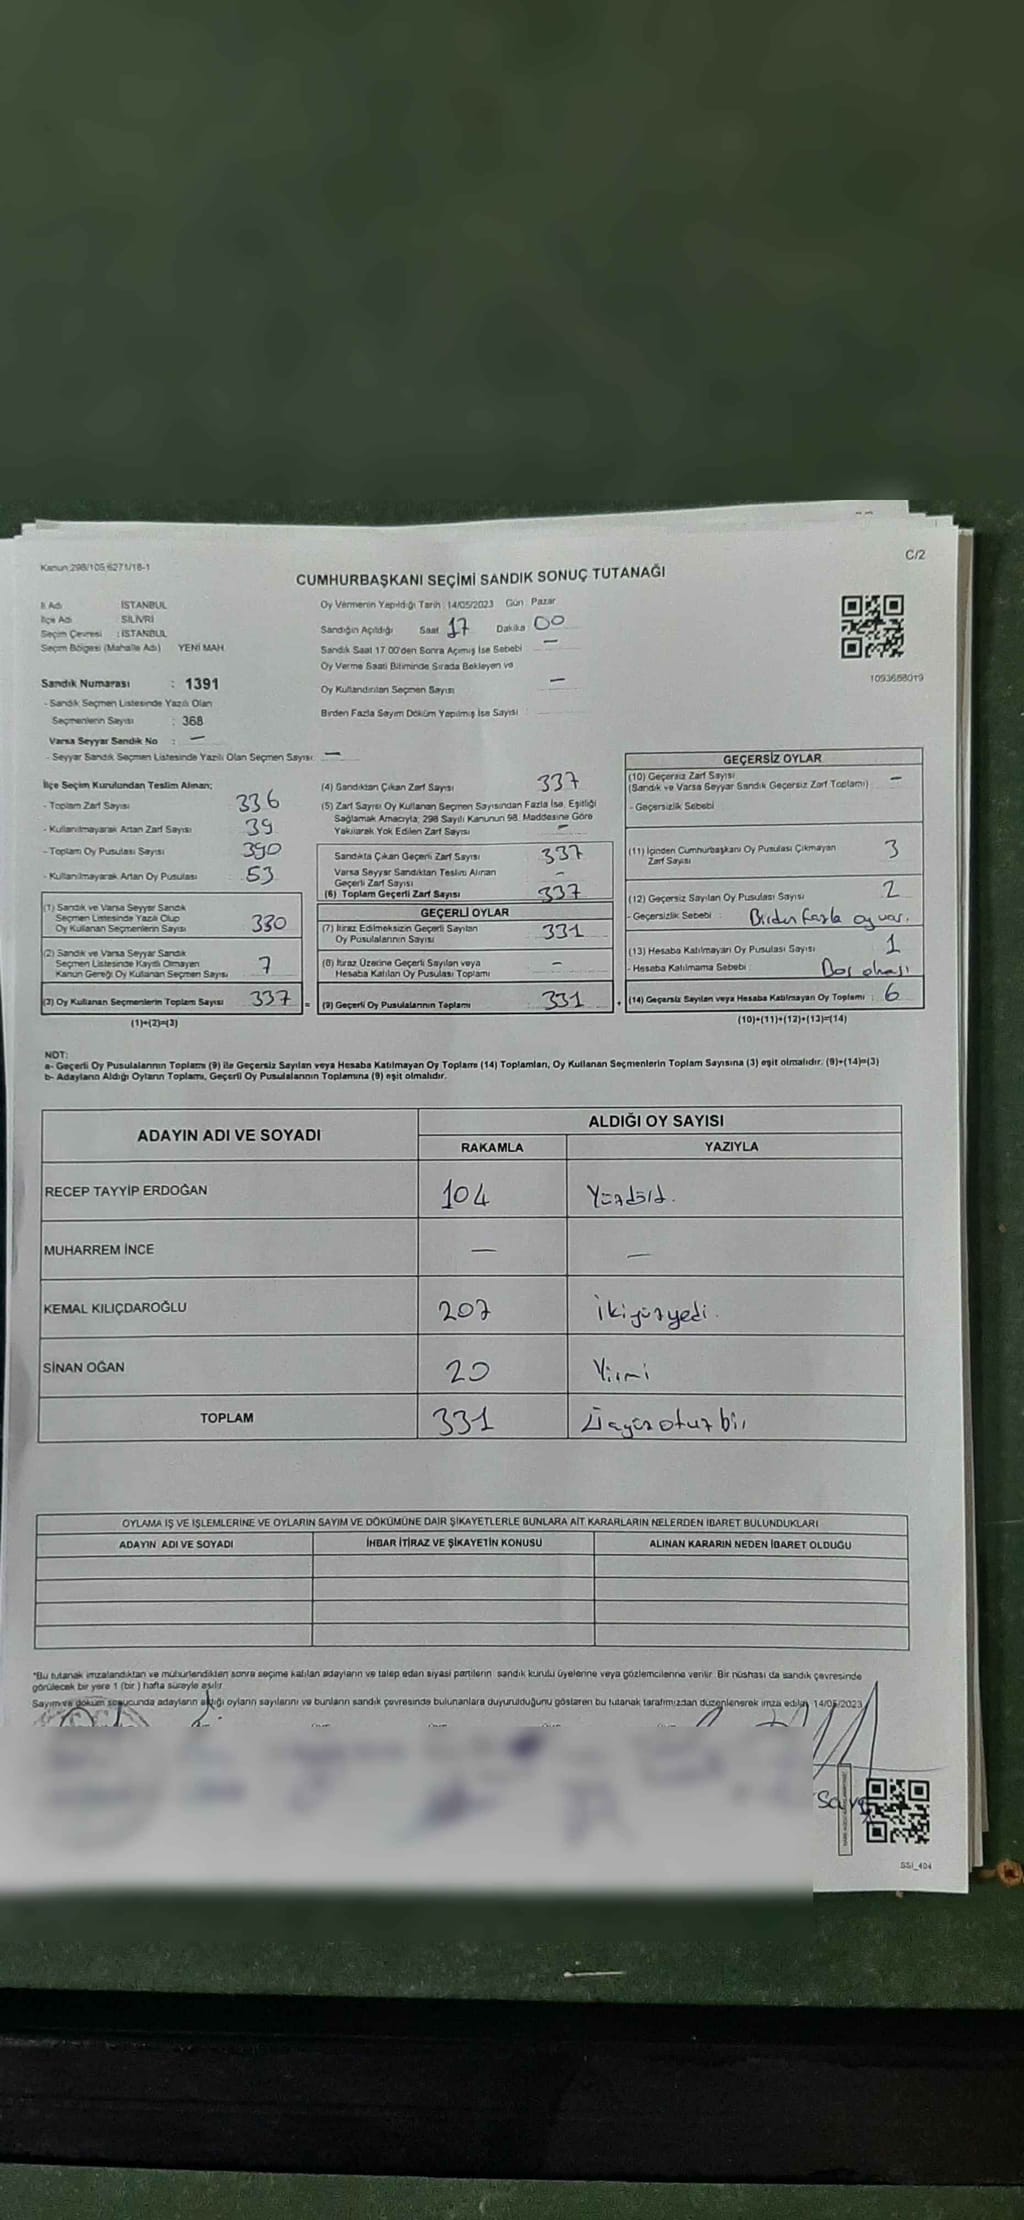 C/2
Kanun:298/105,6271/18-1
CUMHURBAŞKANI SEÇİMİ SANDIK SONUÇ TUTANAĞI
İl Adı İSTANBUL
İlçe Adı SİLİVRİ
Seçim Çevresi : İSTANBUL
Seçim Bölgesi (Mahalle Adı) YENİ MAH
Sandık Numarası : 1391
- Sandık Seçmen Listesinde Yazılı Olan
Seçmenlerin Sayısı : 368
Varsa Seyyar Sandık No : —
- Seyyar Sandık Seçmen Listesinde Yazılı Olan Seçmen Sayısı: —
Oy Vermenin Yapıldığı Tarih : 14/05/2023 Gün Pazar
Sandığın Açıldığı Saat 17 Dakika 00
Sandık Saat 17:00'den Sonra Açımış İse Sebebi —
Oy Verme Saati Bitiminde Sırada Bekleyen ve
Oy Kullandırılan Seçmen Sayısı —
Birden Fazla Sayım Döküm Yapılmış İse Sayısı
1093688019
İlçe Seçim Kurulundan Teslim Alınan;
- Toplam Zarf Sayısı 336
- Kullanılmayarak Artan Zarf Sayısı 39
- Toplam Oy Pusulası Sayısı 390
- Kullanılmayarak Artan Oy Pusulası 53
(1) Sandık ve Varsa Seyyar Sandık
Seçmen Listesinde Yazılı Olup
Oy Kullanan Seçmenlerin Sayısı 330
(2) Sandık ve Varsa Seyyar Sandık
Seçmen Listesinde Kayıtlı Olmayan
Kanun Gereği Oy Kullanan Seçmen Sayısı 7
(3) Oy Kullanan Seçmenlerin Toplam Sayısı 337 =
(1)+(2)=(3)
(4) Sandıktan Çıkan Zarf Sayısı 337
(5) Zarf Sayısı Oy Kullanan Seçmen Sayısından Fazla İse, Eşitliği
Sağlamak Amacıyla, 298 Sayılı Kanunun 98. Maddesine Göre
Yakılarak Yok Edilen Zarf Sayısı —
Sandıkta Çıkan Geçerli Zarf Sayısı 337
Varsa Seyyar Sandıktan Teslim Alınan
Geçerli Zarf Sayısı —
(6) Toplam Geçerli Zarf Sayısı 337
GEÇERLİ OYLAR
(7) İtiraz Edilmeksizin Geçerli Sayılan
Oy Pusulalarının Sayısı 331
(8) İtiraz Üzerine Geçerli Sayılan veya
Hesaba Katılan Oy Pusulası Toplamı —
(9) Geçerli Oy Pusulalarının Toplamı 331 +
GEÇERSİZ OYLAR
(10) Geçersiz Zarf Sayısı
(Sandık ve Varsa Seyyar Sandık Geçersiz Zarf Toplamı) —
- Geçersizlik Sebebi
(11) İçinden Cumhurbaşkanı Oy Pusulası Çıkmayan
Zarf Sayısı 3
(12) Geçersiz Sayılan Oy Pusulası Sayısı 2
- Geçersizlik Sebebi : Birden fazla oy var.
(13) Hesaba Katılmayan Oy Pusulası Sayısı 1
- Hesaba Katılmama Sebebi : Boş olması
(14) Geçersiz Sayılan veya Hesaba Katılmayan Oy Toplamı : 6
(10)+(11)+(12)+(13)=(14)
NOT:
a- Geçerli Oy Pusulalarının Toplamı (9) ile Geçersiz Sayılan veya Hesaba Katılmayan Oy Toplamı (14) Toplamları, Oy Kullanan Seçmenlerin Toplam Sayısına (3) eşit olmalıdır. (9)+(14)=(3)
b- Adayların Aldığı Oyların Toplamı, Geçerli Oy Pusulalarının Toplamına (9) eşit olmalıdır.
ADAYIN ADI VE SOYADI ALDIĞI OY SAYISI
RAKAMLA YAZIYLA
RECEP TAYYİP ERDOĞAN 104 Yüzdört.
MUHARREM İNCE — —
KEMAL KILIÇDAROĞLU 207 İkiyüzyedi.
SİNAN OĞAN 20 Yirmi
TOPLAM 331 Üçyüzotuzbir
OYLAMA İŞ VE İŞLEMLERİNE VE OYLARIN SAYIM VE DÖKÜMÜNE DAİR ŞİKAYETLERLE BUNLARA AİT KARARLARIN NELERDEN İBARET BULUNDUKLARI
ADAYIN ADI VE SOYADI İHBAR İTİRAZ VE ŞİKAYETİN KONUSU ALINAN KARARIN NEDEN İBARET OLDUĞU
*Bu tutanak imzalandıktan ve mühürlendikten sonra seçime katılan adayların ve talep eden siyasi partilerin sandık kurulu üyelerine veya gözlemcilerine verilir. Bir nüshası da sandık çevresinde
görülecek bir yere 1 (bir ) hafta süreyle asılır.
Sayım ve döküm sonucunda adayların aldığı oyların sayılarını ve bunların sandık çevresinde bulunanlara duyurulduğunu gösteren bu tutanak tarafımızdan düzenlenerek imza edildi. 14/05/2023
SSİ_404